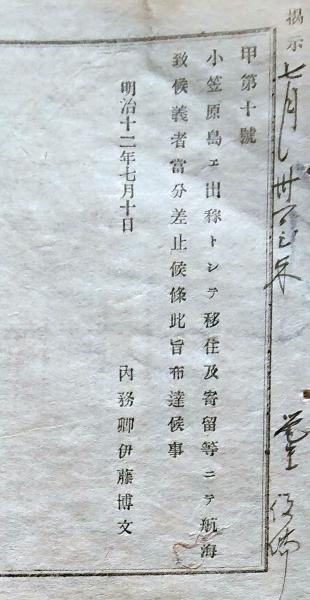 揭示
七月
甲第十號
小笠原島エ出稼トシテ移住及寄留等ニテ航海
致候義者當分差止候條此旨布達候事
明治十二年七月十日
內務卿伊藤博文